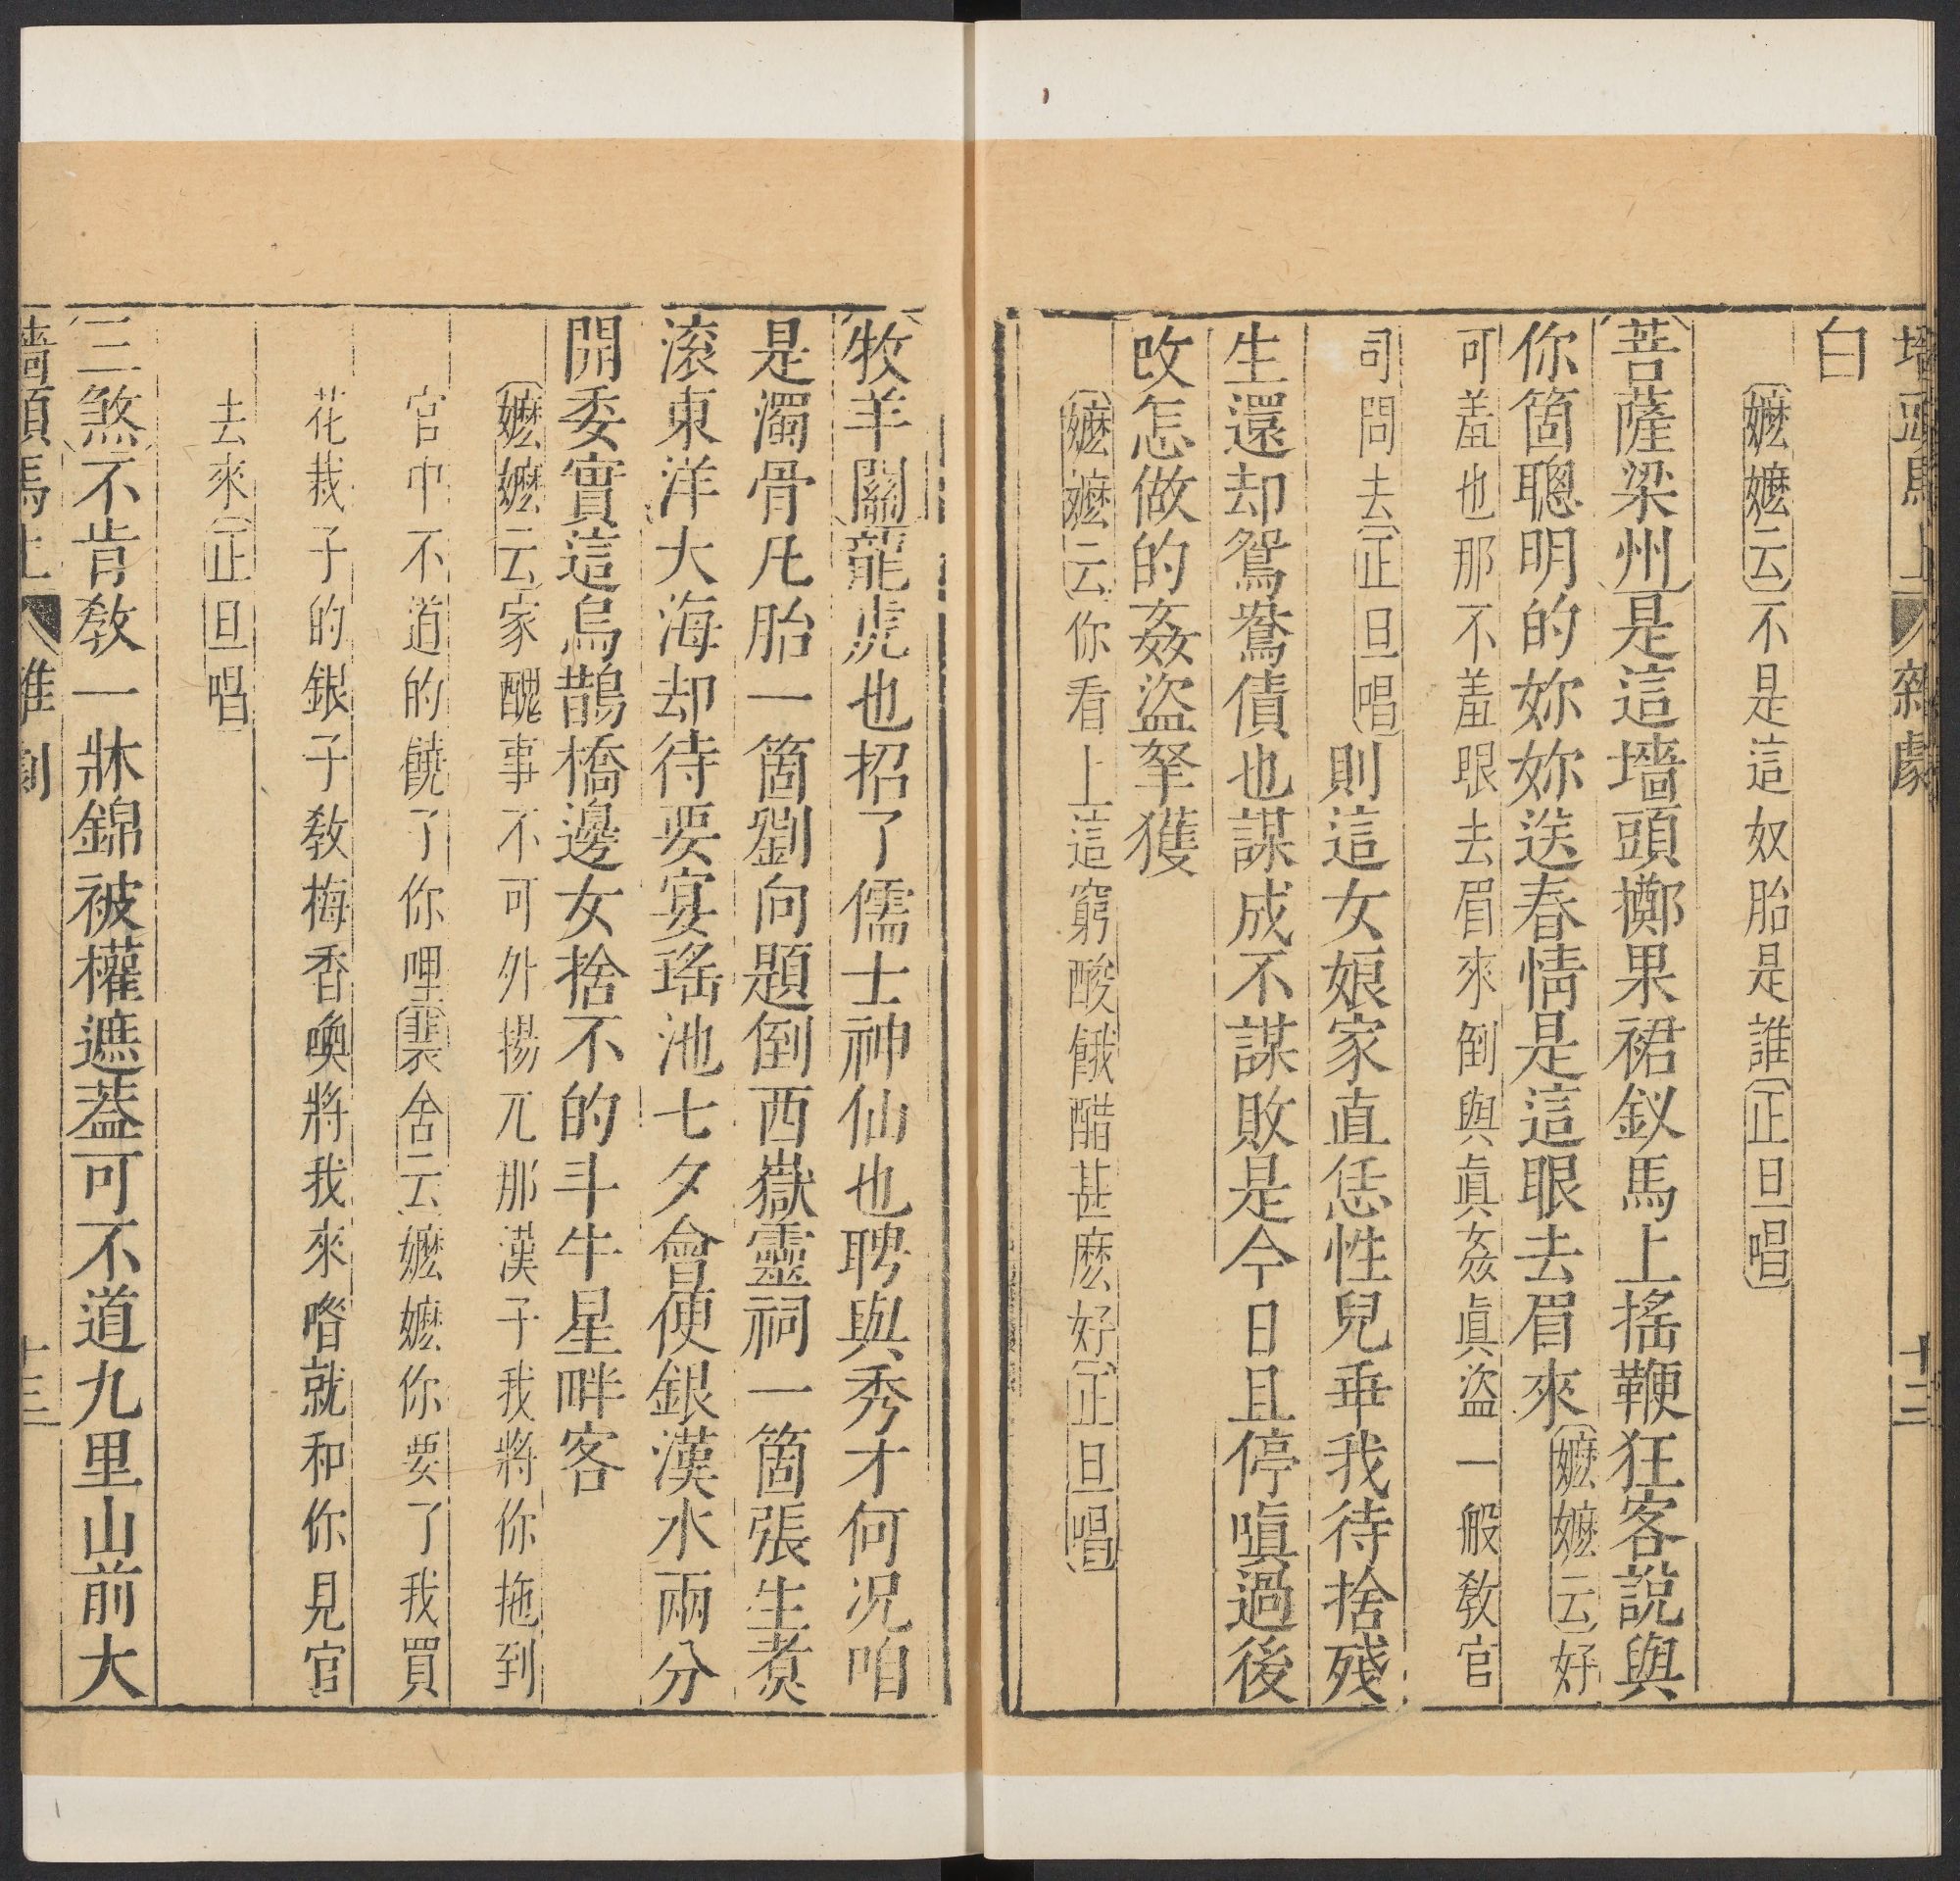 墻頭馬上 雜劇 十二
白
〔嬷嬷云〕不是這奴胎是誰〔正旦唱〕
〔菩薩梁州〕是這墻頭擲果裙釵馬上搖鞭狂客說與
你箇聰明的妳妳送春情是這眼去眉來〔嬷嬷云〕好
可羞也那不羞眼去眉來倒與眞姦眞盜一般敎官
司問去〔正旦唱〕則這女娘家直恁性兒乖我待捨殘
生還却鴛鴦債也謀成不謀敗是今日且停嗔過後
改怎做的姦盜拏獲
〔嬷嬷云〕你看上這窮酸餓醋甚麽好〔正旦唱〕
〔牧羊關〕龍虎也招了儒士神仙也聘與秀才何况咱
是濁骨凡胎一箇劉向題倒西嶽靈祠一箇張生煮
滚東洋大海却待要宴瑤池七夕會便銀漢水兩分
開委實這烏鵲橋邊女捨不的斗牛星畔客
〔嬷嬷云〕家醜事不可外揚兀那漢子我將你拖到
官中不道的饒了你哩〔裴舍云〕嬷嬷你要了我買
花栽子的銀子敎梅香喚將我來喒就和你見官
去來〔正旦唱〕
〔三煞〕不肯敎一牀錦被權遮蓋可不道九里山前大
墻頭馬上 雜劇 十三